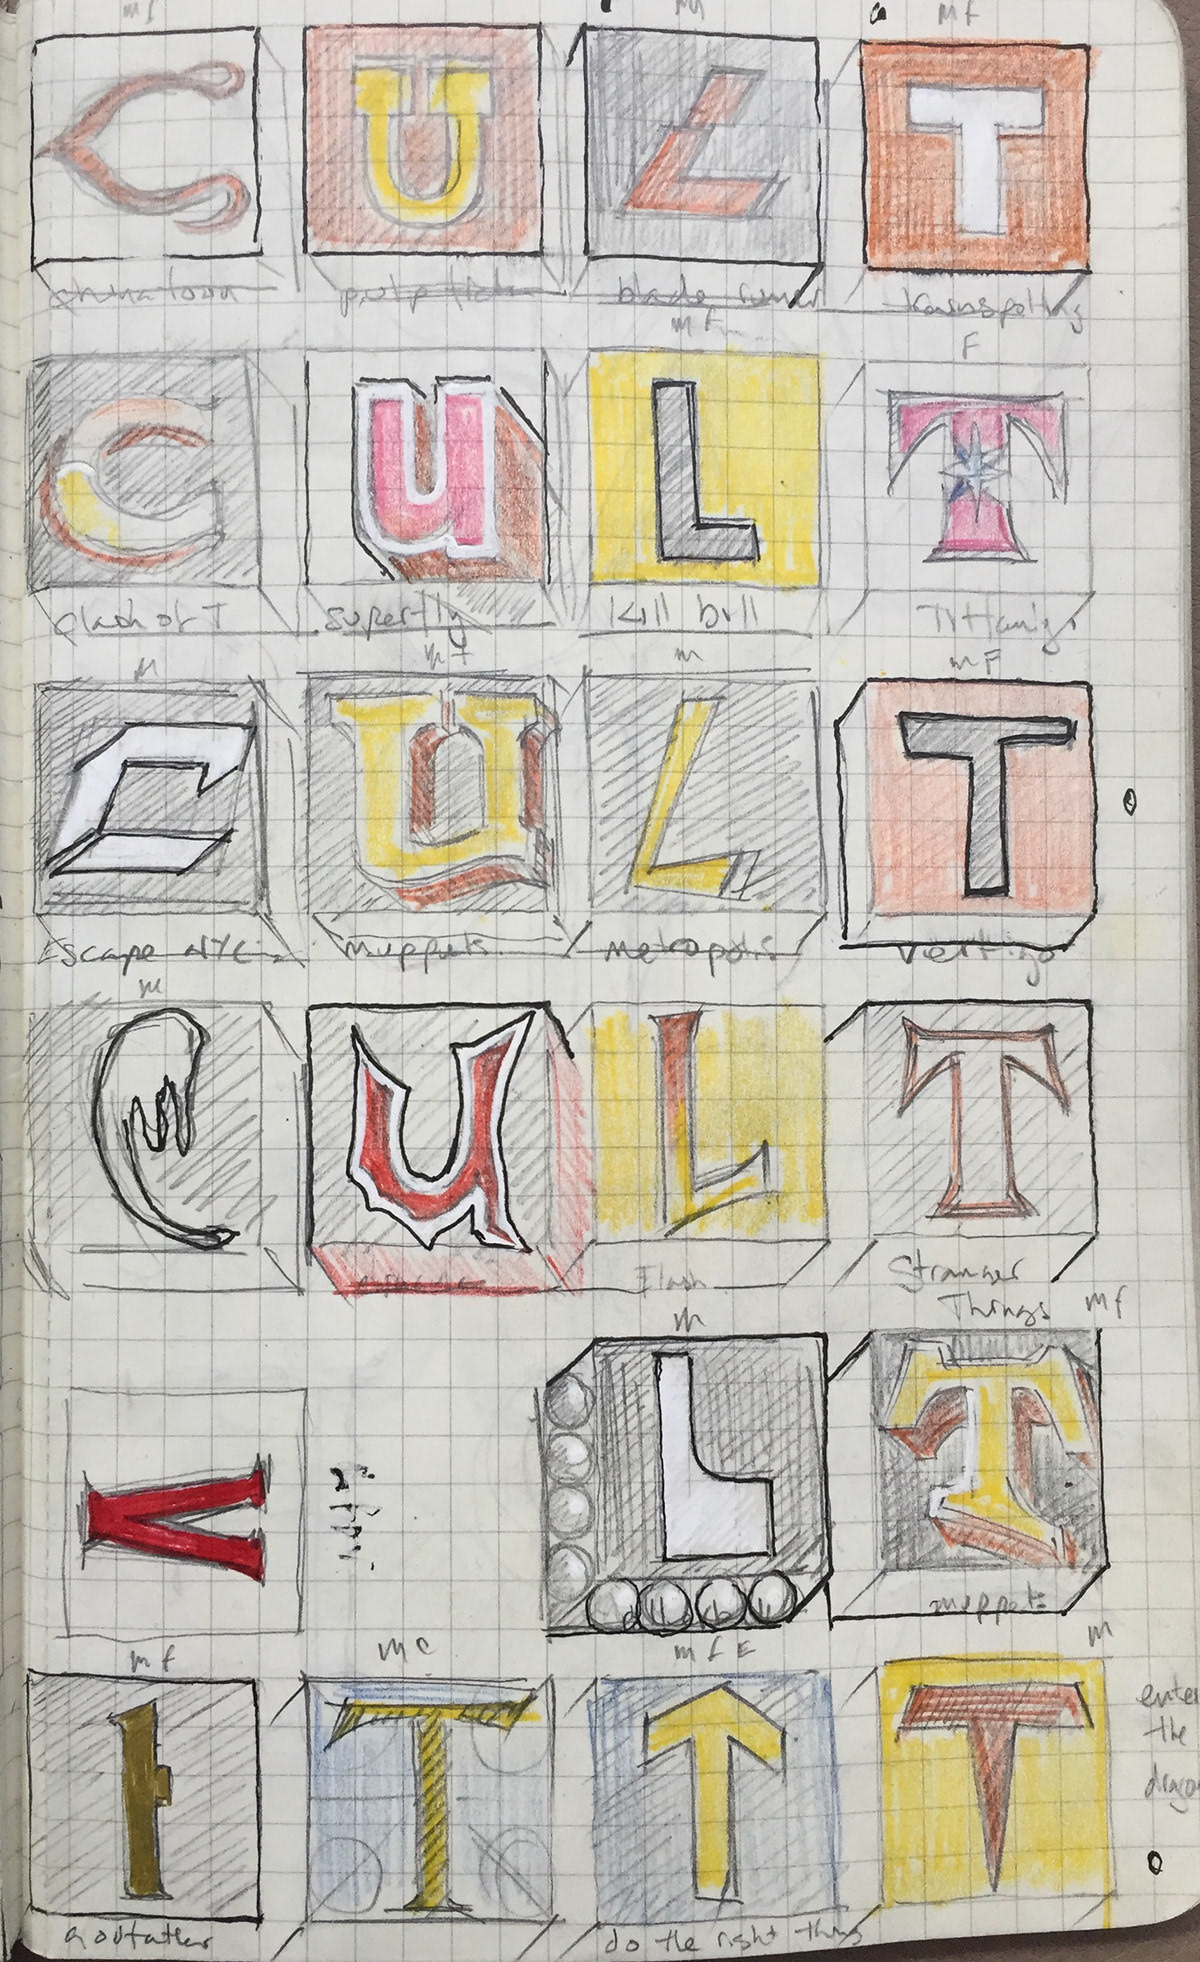 mf
m
mf
C U L T
chinatown
pulp fiction
blade runner
trainspotting
mf
F
C U L T
Clash of T
Superfly
Kill bill
M
mf
m
mF
C U L T
Escape NYC
muppets
Metropolis
Vertigo
m
C U L T
Flash
Stranger
Things
mf
m
V
L T
muppets
mf
mc
mfE
m
t T T T
enter
the
drago
godfather
do the right thing